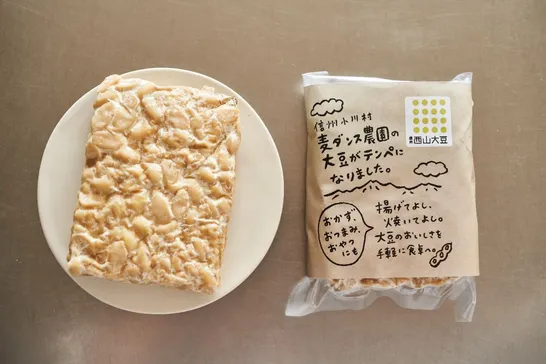 信州小川村
麦ダンス農園の
大豆がテンペに
なりました。
西山大豆
おかず、
おつまみ、
おやつ
にも
揚げてよし、
焼いてよし。
大豆のおいしさを
手軽に食卓へ。